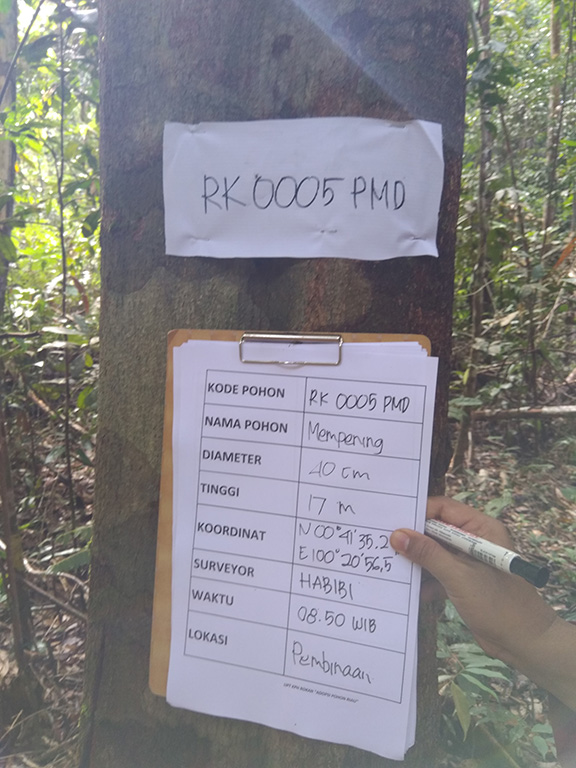 RK 0005 PMD
KODE POHON RK 0005 PMD
NAMA POHON Mempening
DIAMETER 40 cm
TINGGI 17 m
KOORDINAT N 00° 41' 35.2
E 100° 20' 56,5"
SURVEYOR HABIBI
WAKTU 08.50 WIB
LOKASI Pembinaan